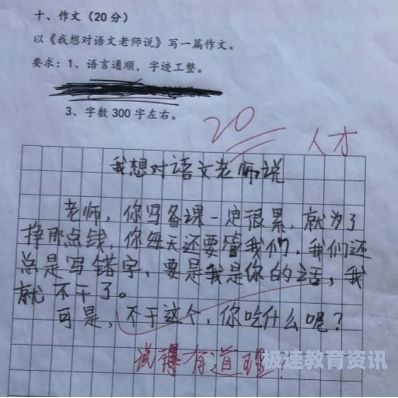 十、作文（20分）
以《我想对语文老师说》写一篇作文。
要求：1、语言通顺，字迹工整。
3、字数 300 字左右。
20
人才
我想对语文老师说
老师，你写备课一定很累，就为了
挣那点钱，你每天还要管我们，我们还
总是写错字，要是我是你的话，我
就不干了。
可是，不干这个，你吃什么呢？
说得有道理！
极速教育资讯